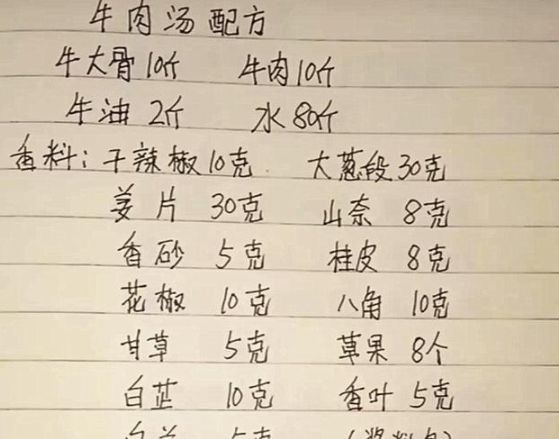 牛肉汤配方
牛大骨10斤 牛肉10斤
牛油 2斤 水 80斤
香料：干辣椒10克 大葱段30克
姜片 30克 山奈 8克
香砂 5克 桂皮 8克
花椒 10克 八角 10克
甘草 5克 草果 8个
白芷 10克 香叶 5克